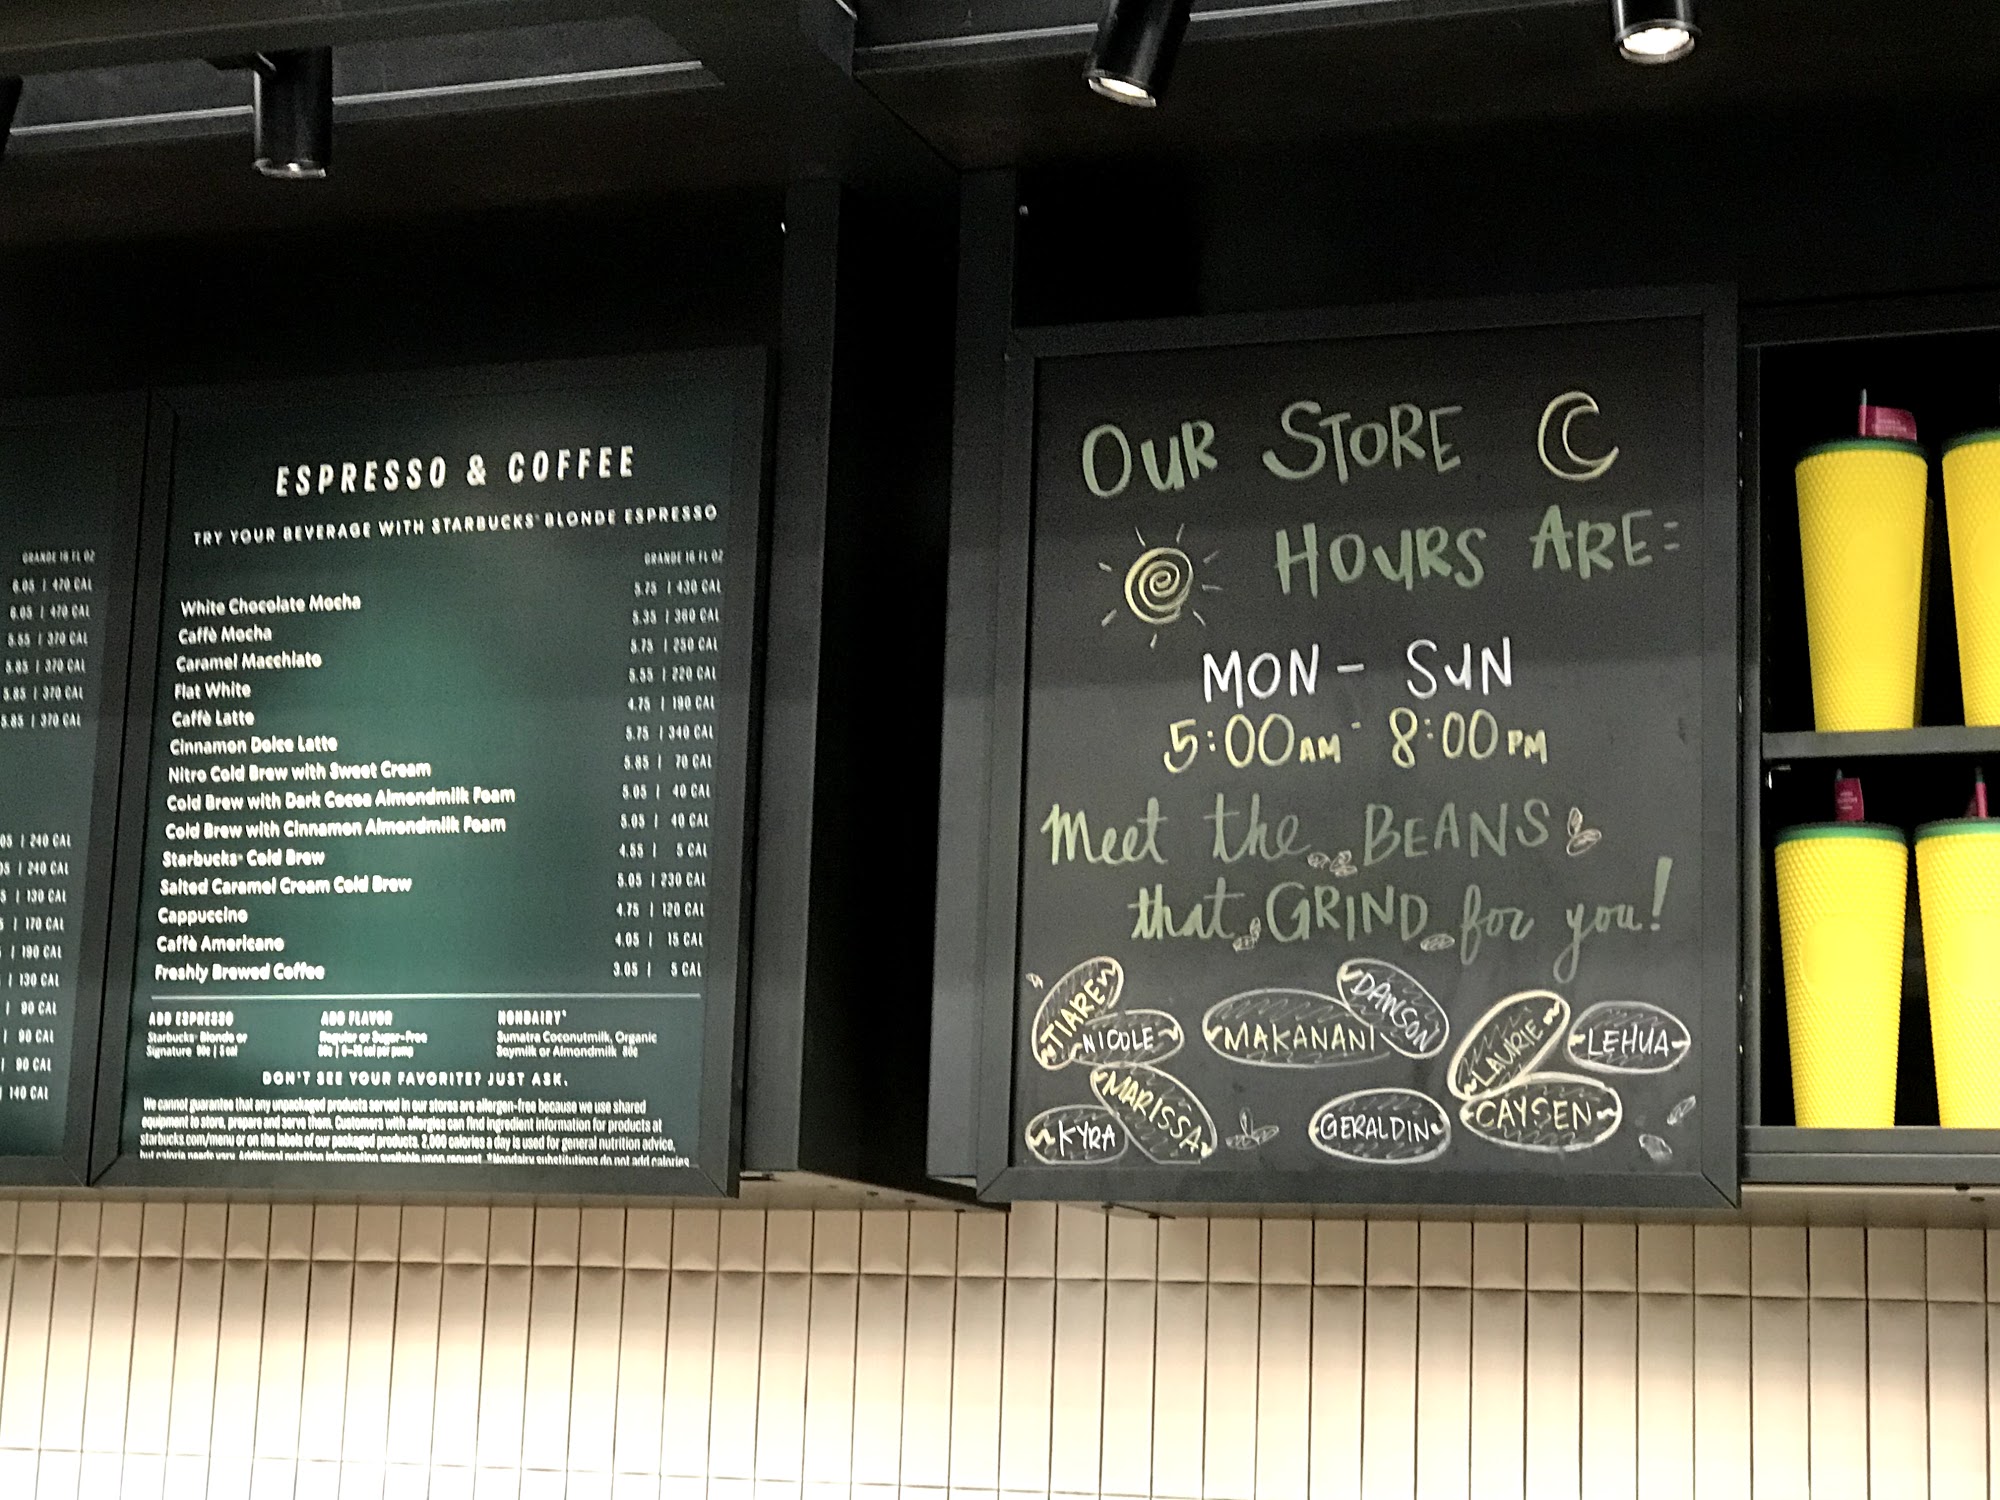 GRANDE 16 FL OZ
6.05 | 470 CAL
6.05 | 470 CAL
5.55 | 370 CAL
5.85 | 370 CAL
5.85 | 370 CAL
5.85 | 370 CAL
05 | 240 CAL
05 | 240 CAL
5 | 130 CAL
5 | 170 CAL
| 190 CAL
| 130 CAL
| 90 CAL
| 90 CAL
| 90 CAL
| 140 CAL
ESPRESSO & COFFEE
TRY YOUR BEVERAGE WITH STARBUCKS® BLONDE ESPRESSO
GRANDE 16 FL OZ
White Chocolate Mocha 5.75 | 430 CAL
Caffè Mocha 5.35 | 360 CAL
Caramel Macchiato 5.75 | 250 CAL
Flat White 5.55 | 220 CAL
Caffè Latte 4.75 | 190 CAL
Cinnamon Dolce Latte 5.75 | 340 CAL
Nitro Cold Brew with Sweet Cream 5.85 | 70 CAL
Cold Brew with Dark Cocoa Almondmilk Foam 5.05 | 40 CAL
Cold Brew with Cinnamon Almondmilk Foam 5.05 | 40 CAL
Starbucks® Cold Brew 4.55 | 5 CAL
Salted Caramel Cream Cold Brew 5.05 | 230 CAL
Cappuccino 4.75 | 120 CAL
Caffè Americano 4.05 | 15 CAL
Freshly Brewed Coffee 3.05 | 5 CAL
ADD ESPRESSO
Starbucks® Blonde or
Signature 90¢ | 5 cal
ADD FLAVOR
Regular or Sugar-Free
80¢ | 0–25 cal per pump
NONDAIRY*
Sumatra Coconutmilk, Organic
Soymilk or Almondmilk 80¢
DON'T SEE YOUR FAVORITE? JUST ASK.
We cannot guarantee that any unpackaged products served in our stores are allergen-free because we use shared
equipment to store, prepare and serve them. Customers with allergies can find ingredient information for products at
starbucks.com/menu or on the labels of our packaged products. 2,000 calories a day is used for general nutrition advice,
but calorie needs vary. Additional nutrition information available upon request. *Nondairy substitutions do not add calories
OUR STORE
HOURS ARE:
MON - SUN
5:00AM - 8:00PM
Meet the BEANS
that GRIND for you!
TIARE
NICOLE
MAKANANI
DAWSON
LAURIE
LEHUA
MARISSA
KYRA
GERALDIN
CAYSEN